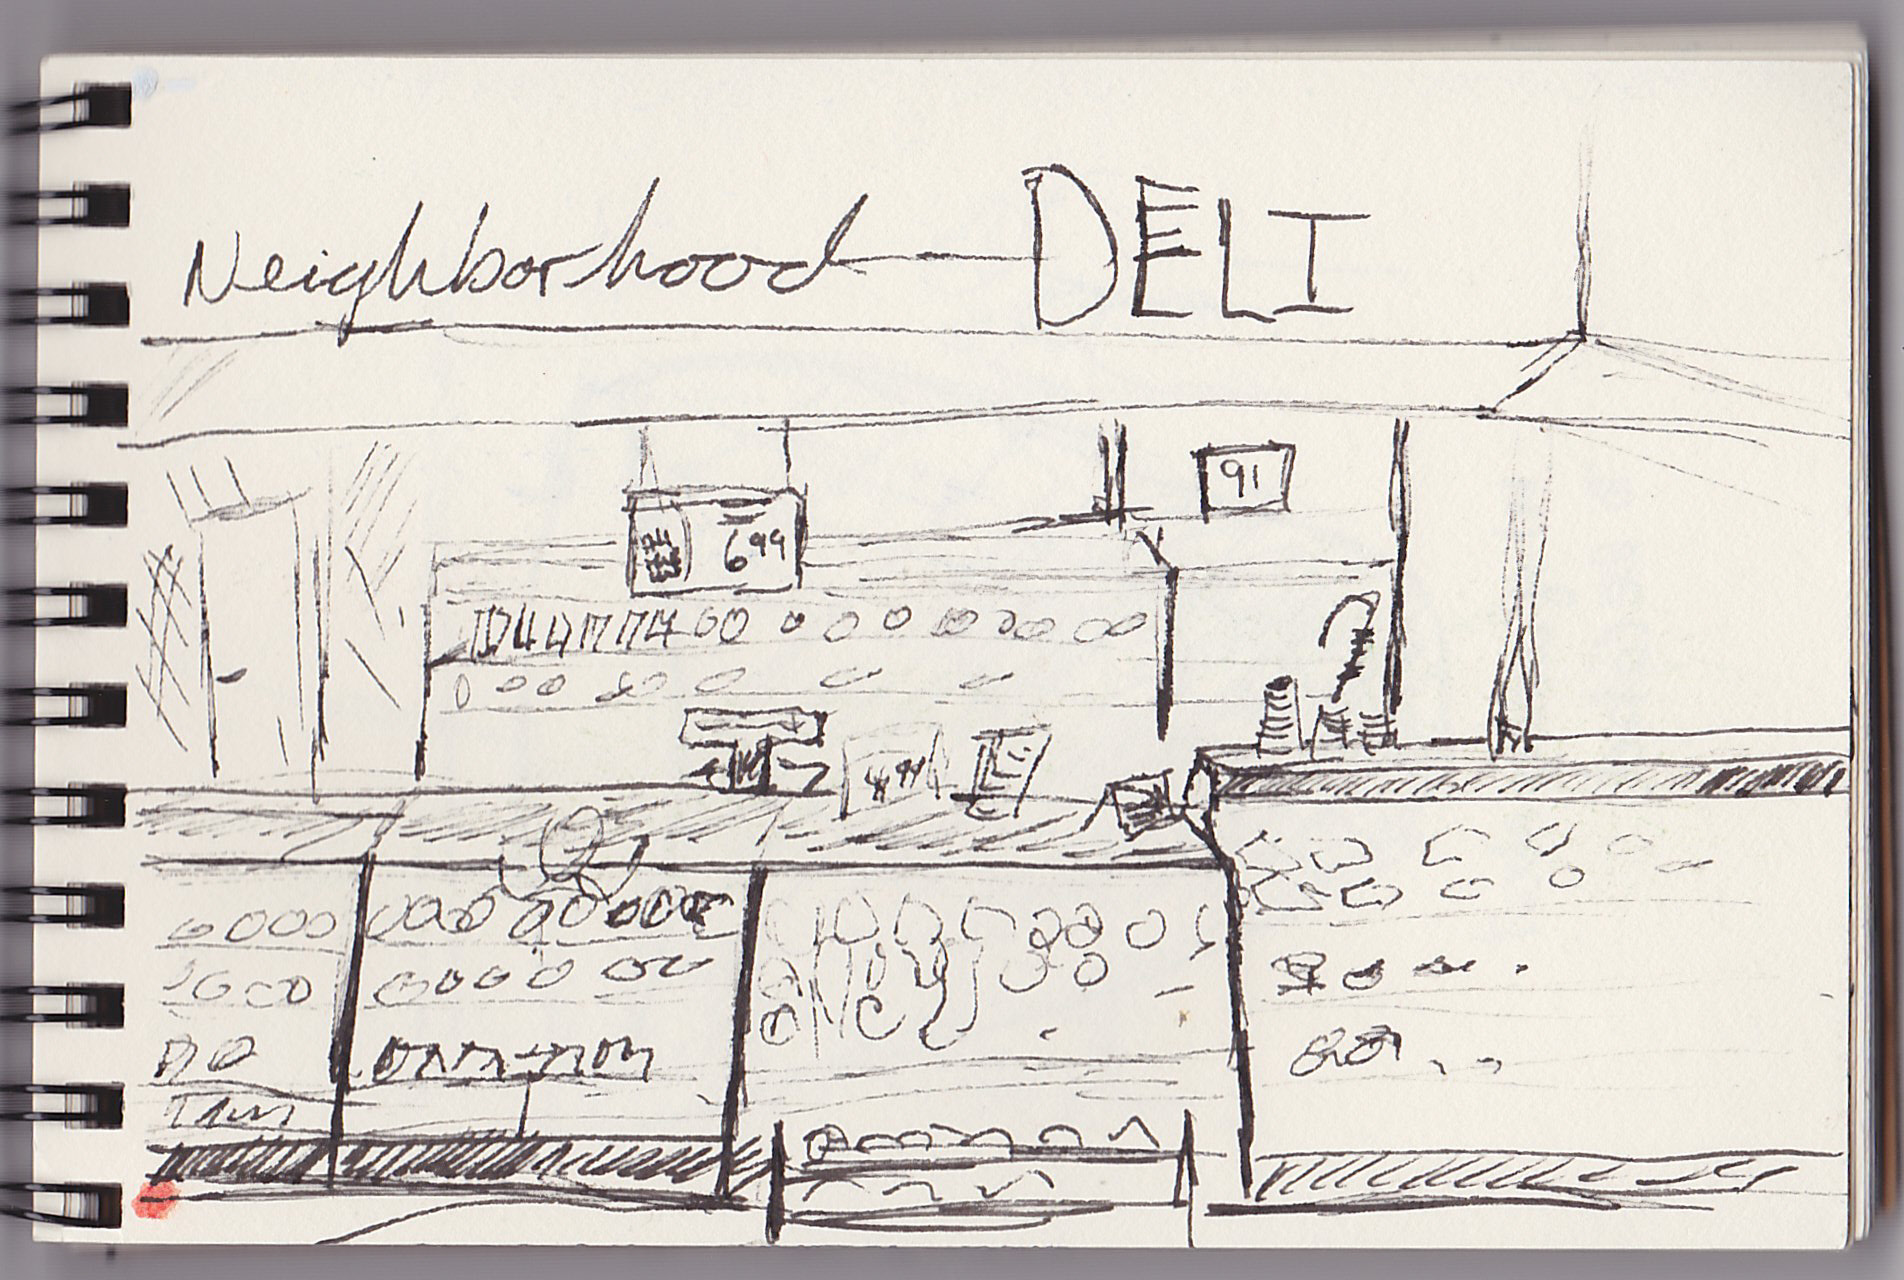 Neighborhood DELI
91
6 99